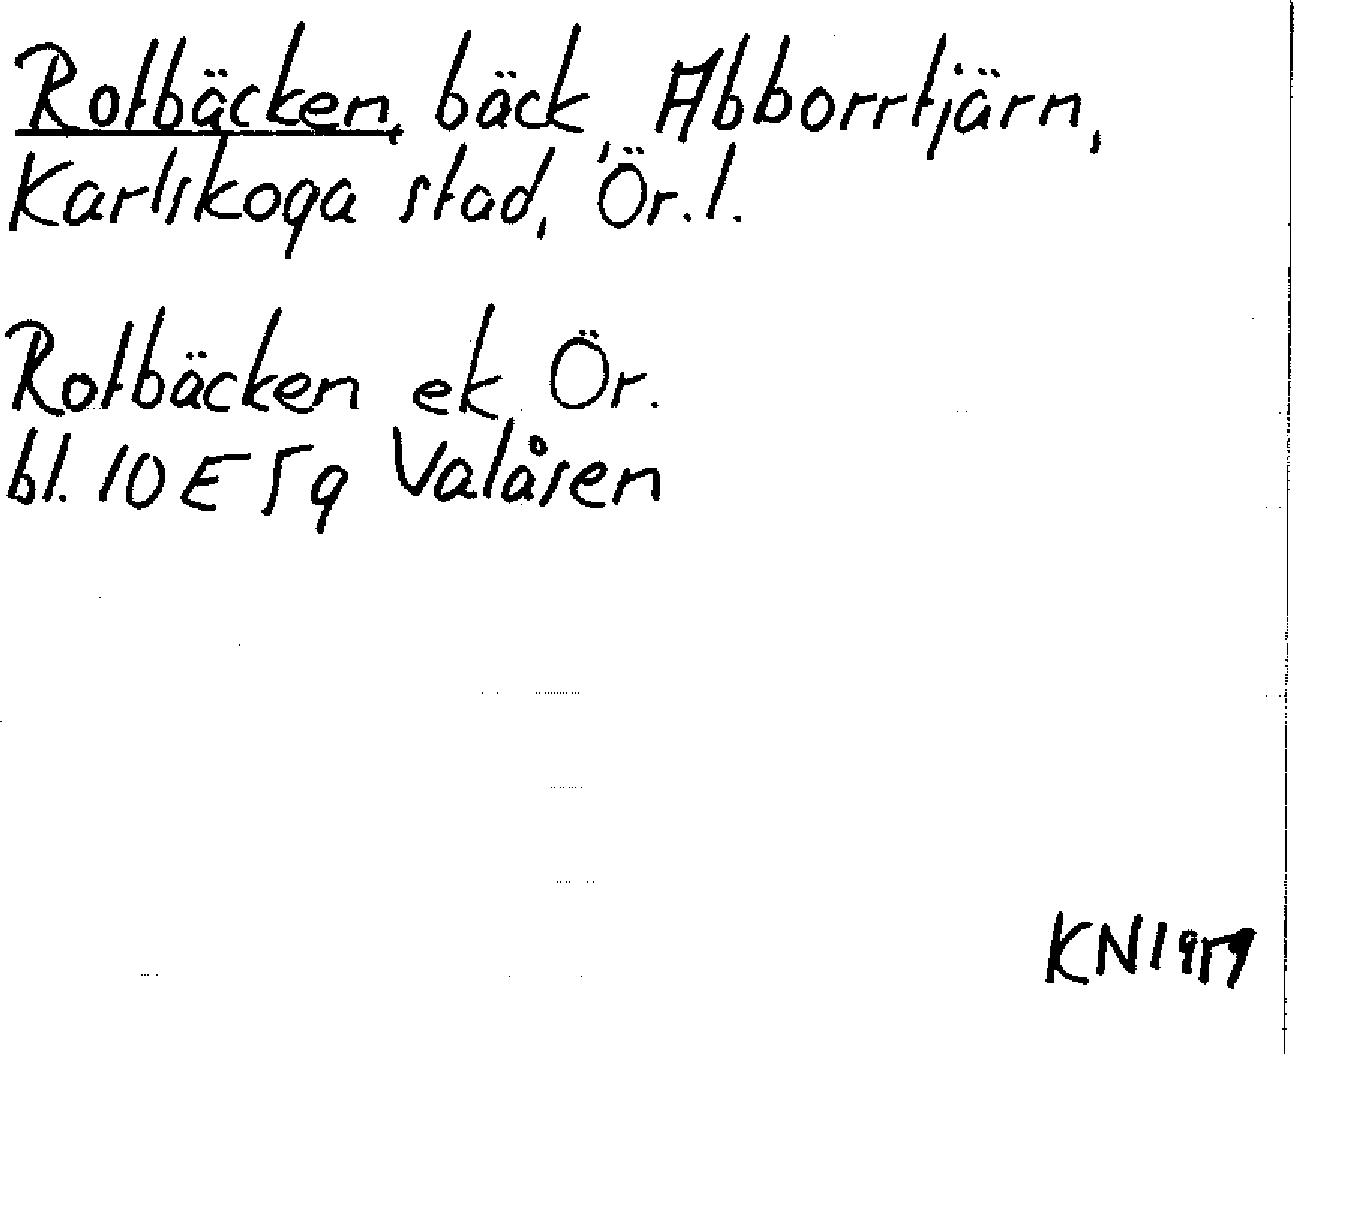 Rotbäcken, bäck, Abborrtjärn,
Karlskoga stad, Ör. l.
Rotbäcken ek Ör.
bl. 10 E 5 g Valåsen
KN 1959